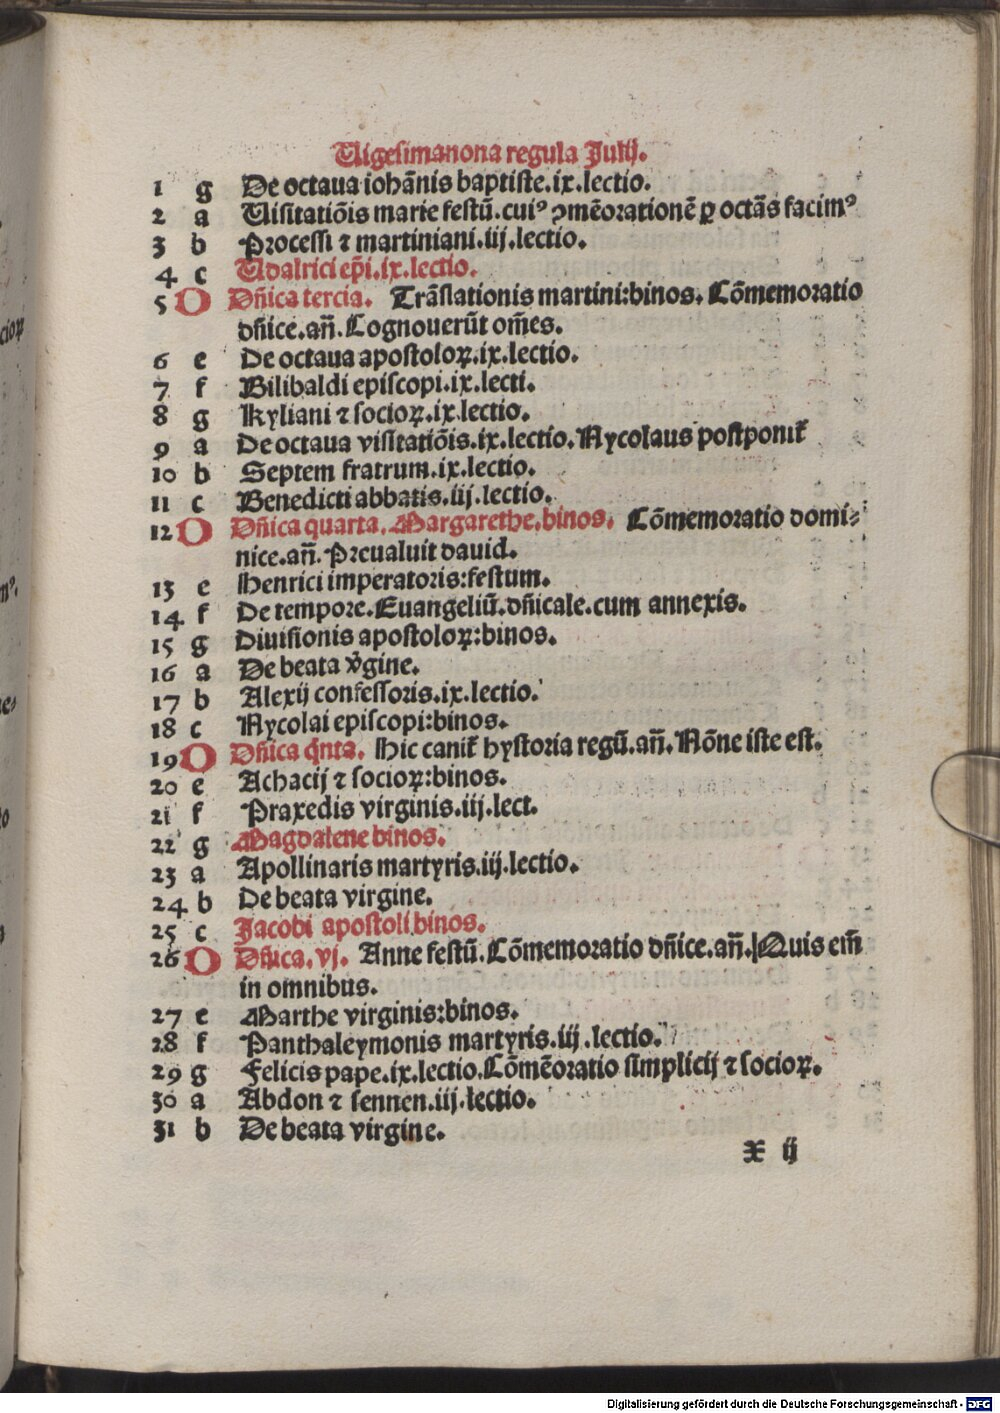 Uigesimanona regula Julij.
1 g De octaua iohãnis baptiste.ix.lectio.
2 a Uisitatiõis marie festũ.cuiꝰ ꝯmẽorationẽ ꝑ octãs facimꝰ
3 b Processi ⁊ martiniani.iij.lectio.
4 c Udalrici ep̃i.ix.lectio.
5 D Dñica tercia. Trãslationis martini:binos. Cõmemoratio
dñice.añ. Cognouerũt om̃es.
6 e De octaua apostoloꝝ.ix.lectio.
7 f Bilibaldi episcopi.ix.lecti.
8 g Kyliani ⁊ socioꝝ.ix.lectio.
9 a De octaua visitatiõis.ix.lectio.Nycolaus postponit᷑
10 b Septem fratrum.ix.lectio.
11 c Benedicti abbatis.iij.lectio.
12 D Dñica quarta. Margarethe.binos. Cõmemoratio domi⸗
nice.añ. Preualuit dauid.
13 e Henrici imperatoris:festum.
14 f De tempore.Euangeliũ.dñicale.cum annexis.
15 g Diuisionis apostoloꝝ:binos.
16 a De beata v̾gine.
17 b Alexij confessoris.ix.lectio.
18 c Nycolai episcopi:binos.
19 D Dñica q̇nta. Hic canit᷑ hystoria regũ.añ.Nõne iste est.
20 e Achacij ⁊ socioꝝ:binos.
21 f Praxedis virginis.iij.lect.
22 g Magdalene binos.
23 a Apollinaris martyris.iij.lectio.
24 b De beata virgine.
25 c Jacobi apostoli.binos.
26 D Dñica.vj. Anne festũ.Cõmemoratio dñice.añ.Quis em̃
in omnibus.
27 e Marthe virginis:binos.
28 f Panthaleymonis martyris.iij.lectio.
29 g Felicis pape.ix.lectio.Cõmẽoratio simplicij ⁊ socioꝝ.
30 a Abdon ⁊ sennen.iij.lectio.
31 b De beata virgine.
x ij
Digitalisierung gefördert durch die Deutsche Forschungsgemeinschaft - DFG